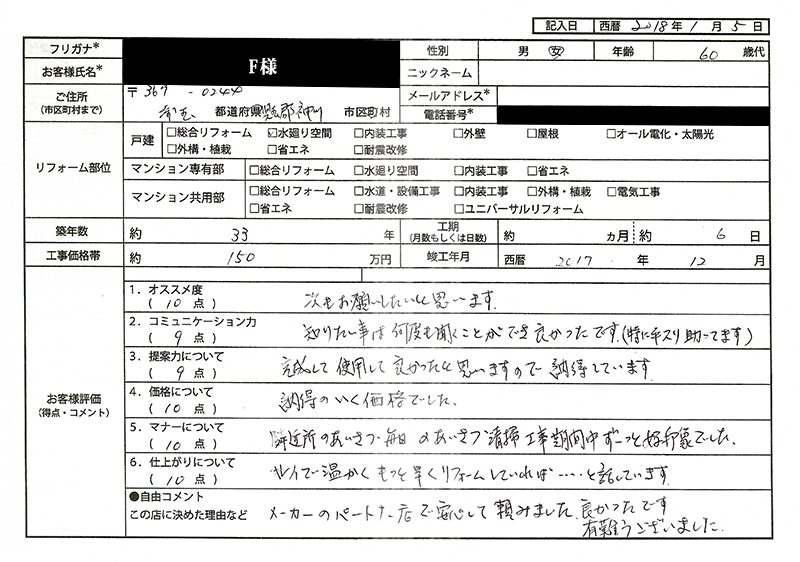 記入日 西暦 2018年 1月 5日
フリガナ*
お客様氏名* F様
性別 男 女 年齢 60 歳代
ニックネーム
ご住所 (市区町村まで) 〒367-0244
都道府県 児玉郡神川 市区町村
メールアドレス*
電話番号*
リフォーム部位
戸建 □総合リフォーム ☑水廻り空間 □内装工事 □外壁 □屋根 □オール電化・太陽光
□外構・植栽 □省エネ □耐震改修
マンション専有部 □総合リフォーム □水廻り空間 □内装工事 □省エネ
マンション共用部 □総合リフォーム □水道・設備工事 □内装工事 □外構・植栽 □電気工事
□省エネ □耐震改修 □ユニバーサルリフォーム
築年数 約 33 年 工期 (月数もしくは日数) 約 ヵ月 約 6 日
工事価格帯 約 150 万円 竣工年月 西暦 2017 年 12 月
お客様評価 (得点・コメント)
1．オススメ度
(10点) 次もお願いしたいと思います。
2．コミュニケーション力
(9点) 知りたい事は何度も聞くことができ良かったです。(特に手スリ助ってます)
3．提案力について
(9点) 完成して使用して良かったと思いますので納得しています。
4．価格について
(10点) 納得のいく価格でした。
5．マナーについて
(10点) 隣近所のあいさつ・毎日のあいさつ 清掃 工事期間中ずーっと好印象でした。
6．仕上がりについて
(10点) キレイで温かく もっと早くリフォームしていれば……と話しています。
●自由コメント
この店に決めた理由など メーカーのパートナー店で安心して頼みました。良かったです
有難うございました。